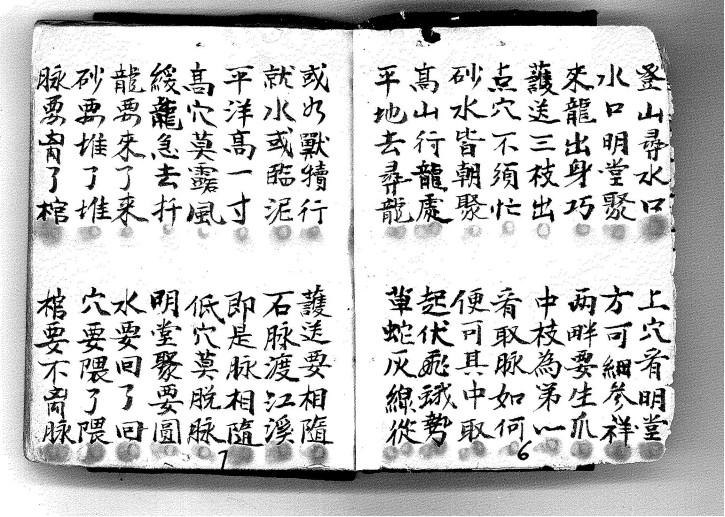 登山尋水口
上穴看明堂
水口明堂聚
方可細參祥
來龍出身巧
两畔要生爪
護送三枝出
中枝為第一
点穴不須忙
看取脉如何
砂水皆朝聚
便可其中取
高山行龍處
起伏飛蛾勢
平地去尋龍
草蛇灰線從
6
或如獸犢行
護送要相隨
就水或臨泥
石脉渡江溪
平洋高一寸
即是脉相隨
高穴莫露風
低穴莫脱脉
緩龍急去扦
明堂聚要圓
龍要來了來
水要回了回
砂要堆了堆
穴要隈了隈
脉要离了棺
棺要不离脉
7